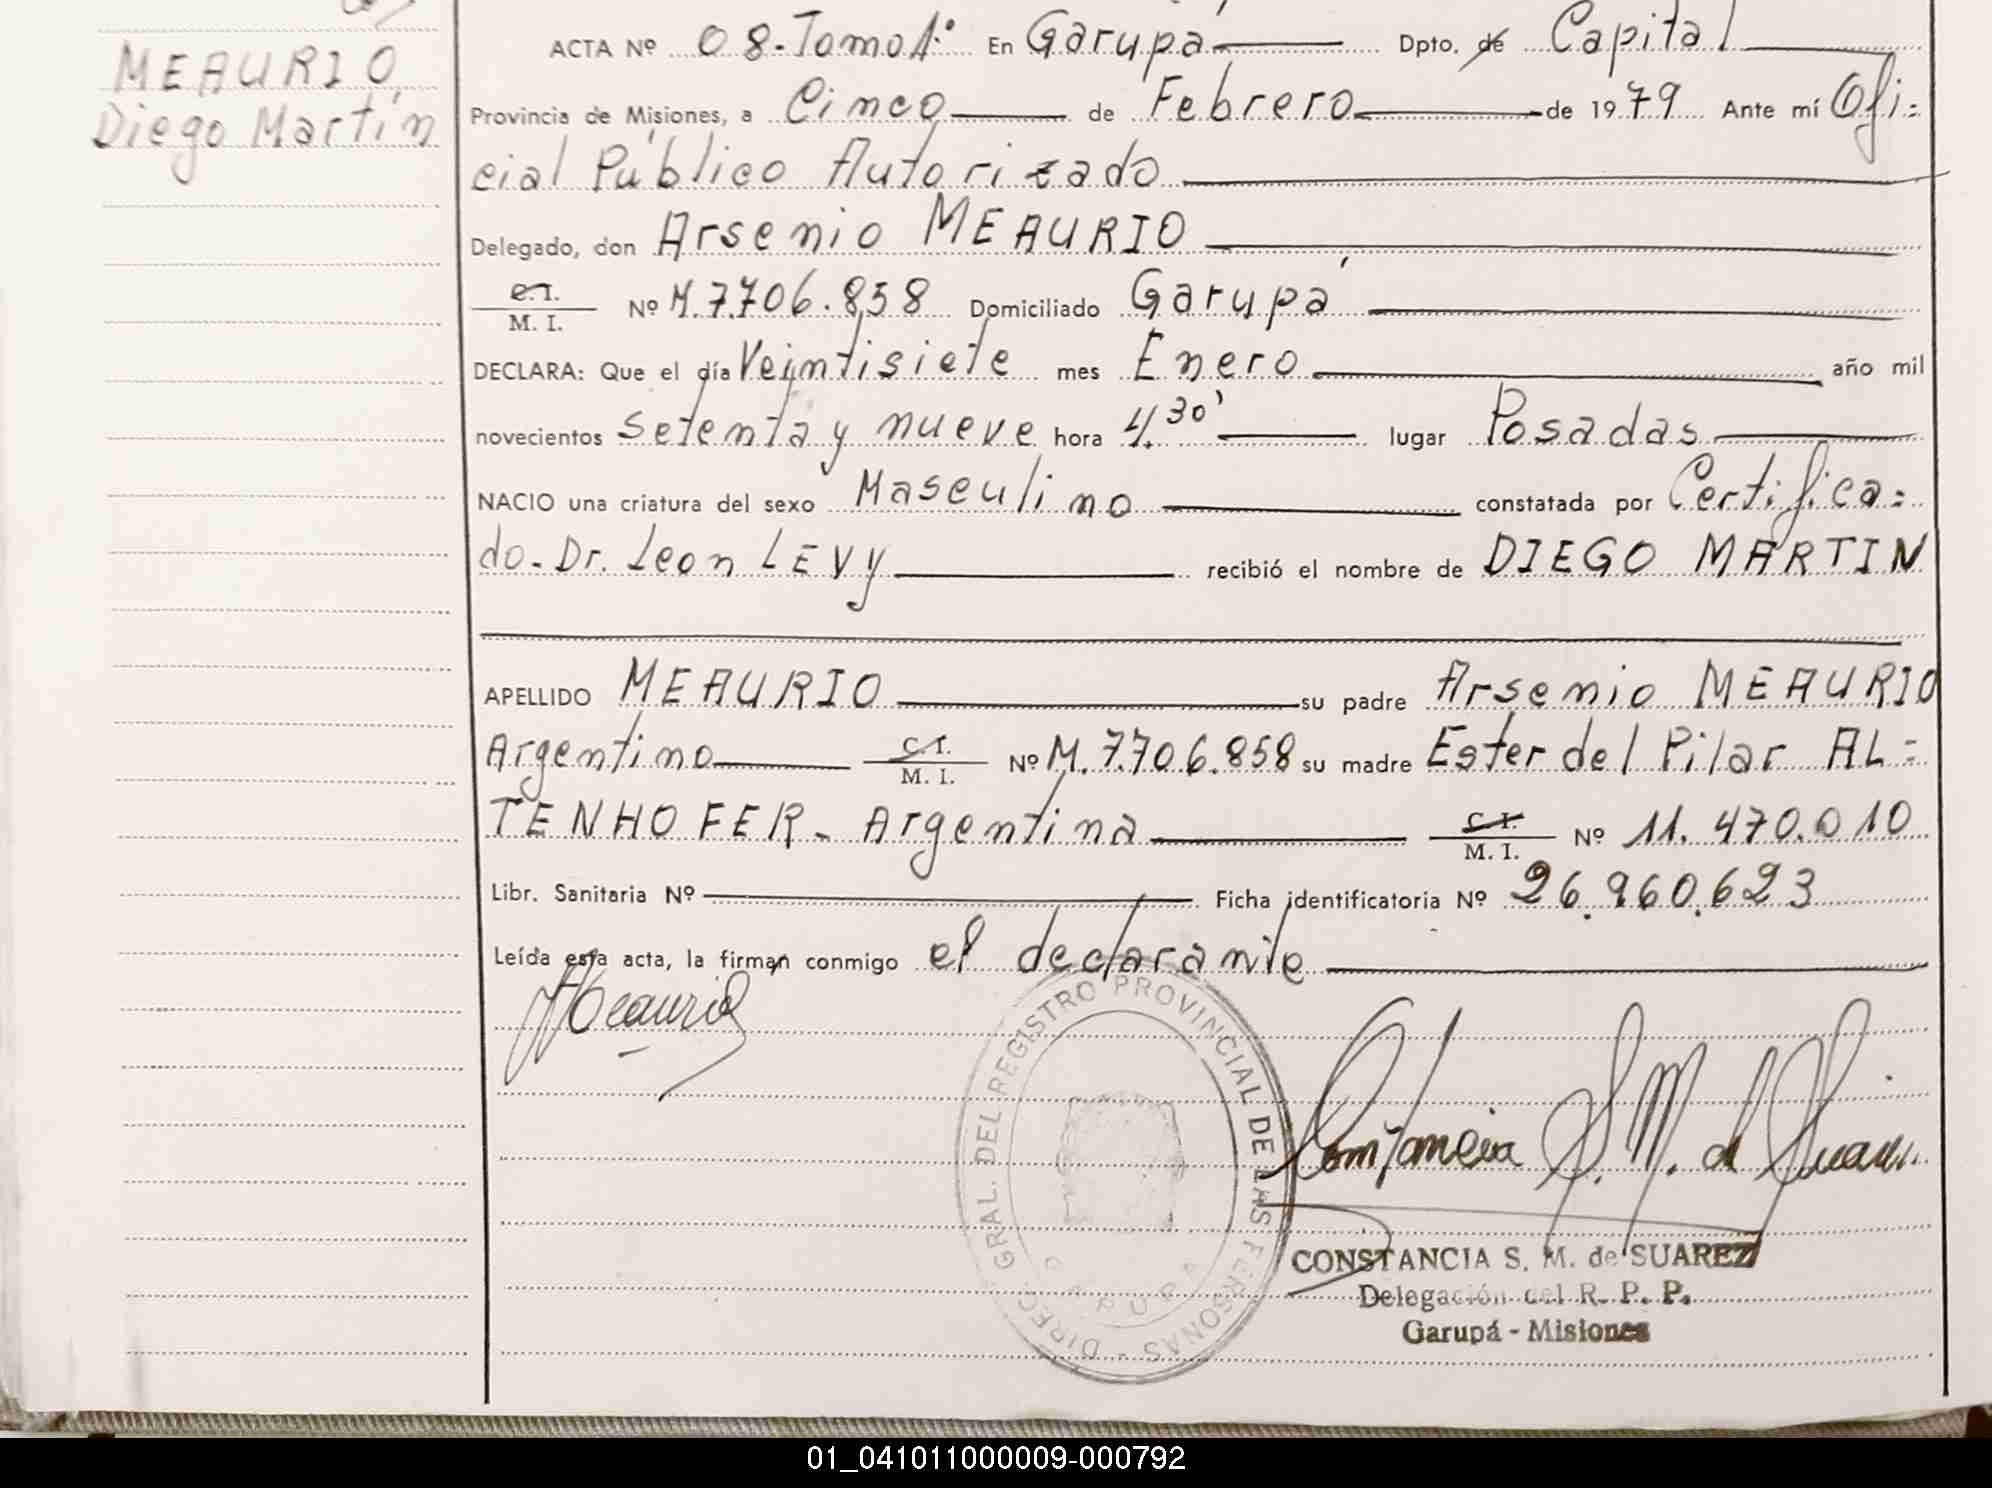 MEAURIO
Diego Martín
ACTA Nº 08-Tomo 1º En Garupá Dpto. de Capital
Provincia de Misiones, a Cinco de Febrero de 1979 Ante mí Ofi=
cial Público Autorizado
Delegado, don Arsenio MEAURIO
C.I.
M. I. Nº M.7.706.858 Domiciliado Garupá
DECLARA: Que el día Veintisiete mes Enero año mil
novecientos setenta y nueve hora 4.30' lugar Posadas
NACIO una criatura del sexo Masculino constatada por Certifica=
do-Dr. Leon LEVY recibió el nombre de DIEGO MARTIN
APELLIDO MEAURIO su padre Arsenio MEAURIO
Argentino C.I. M. I. Nº M.7.706.858 su madre Ester del Pilar AL=
TENHOFER- Argentina C.I. M. I. Nº 11.470.010
Libr. Sanitaria Nº Ficha identificatoria Nº 26.960.623
Leída esta acta, la firman conmigo el declarante
Meaurio
DIREC. GRAL. DEL REGISTRO PROVINCIAL DE LAS PERSONAS -
GARUPA
Constancia S. M. de Suarez
CONSTANCIA S. M. de SUAREZ
Delegación del R. P. P.
Garupá - Misiones
01_041011000009-000792